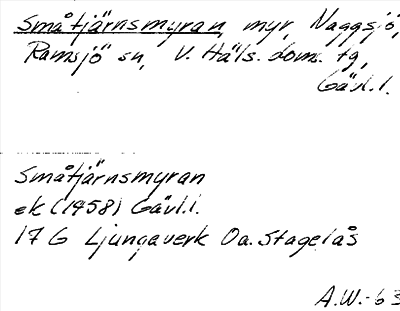 Småtjärnsmyran, myr, Naggsjö,
Ramsjö sn, V. Häls. doms. tg,
Gävl.l.
Småtjärnsmyran
ek (1958) Gävl.l.
17 G Ljungaverk Oa. Stagelås
A.W.-63